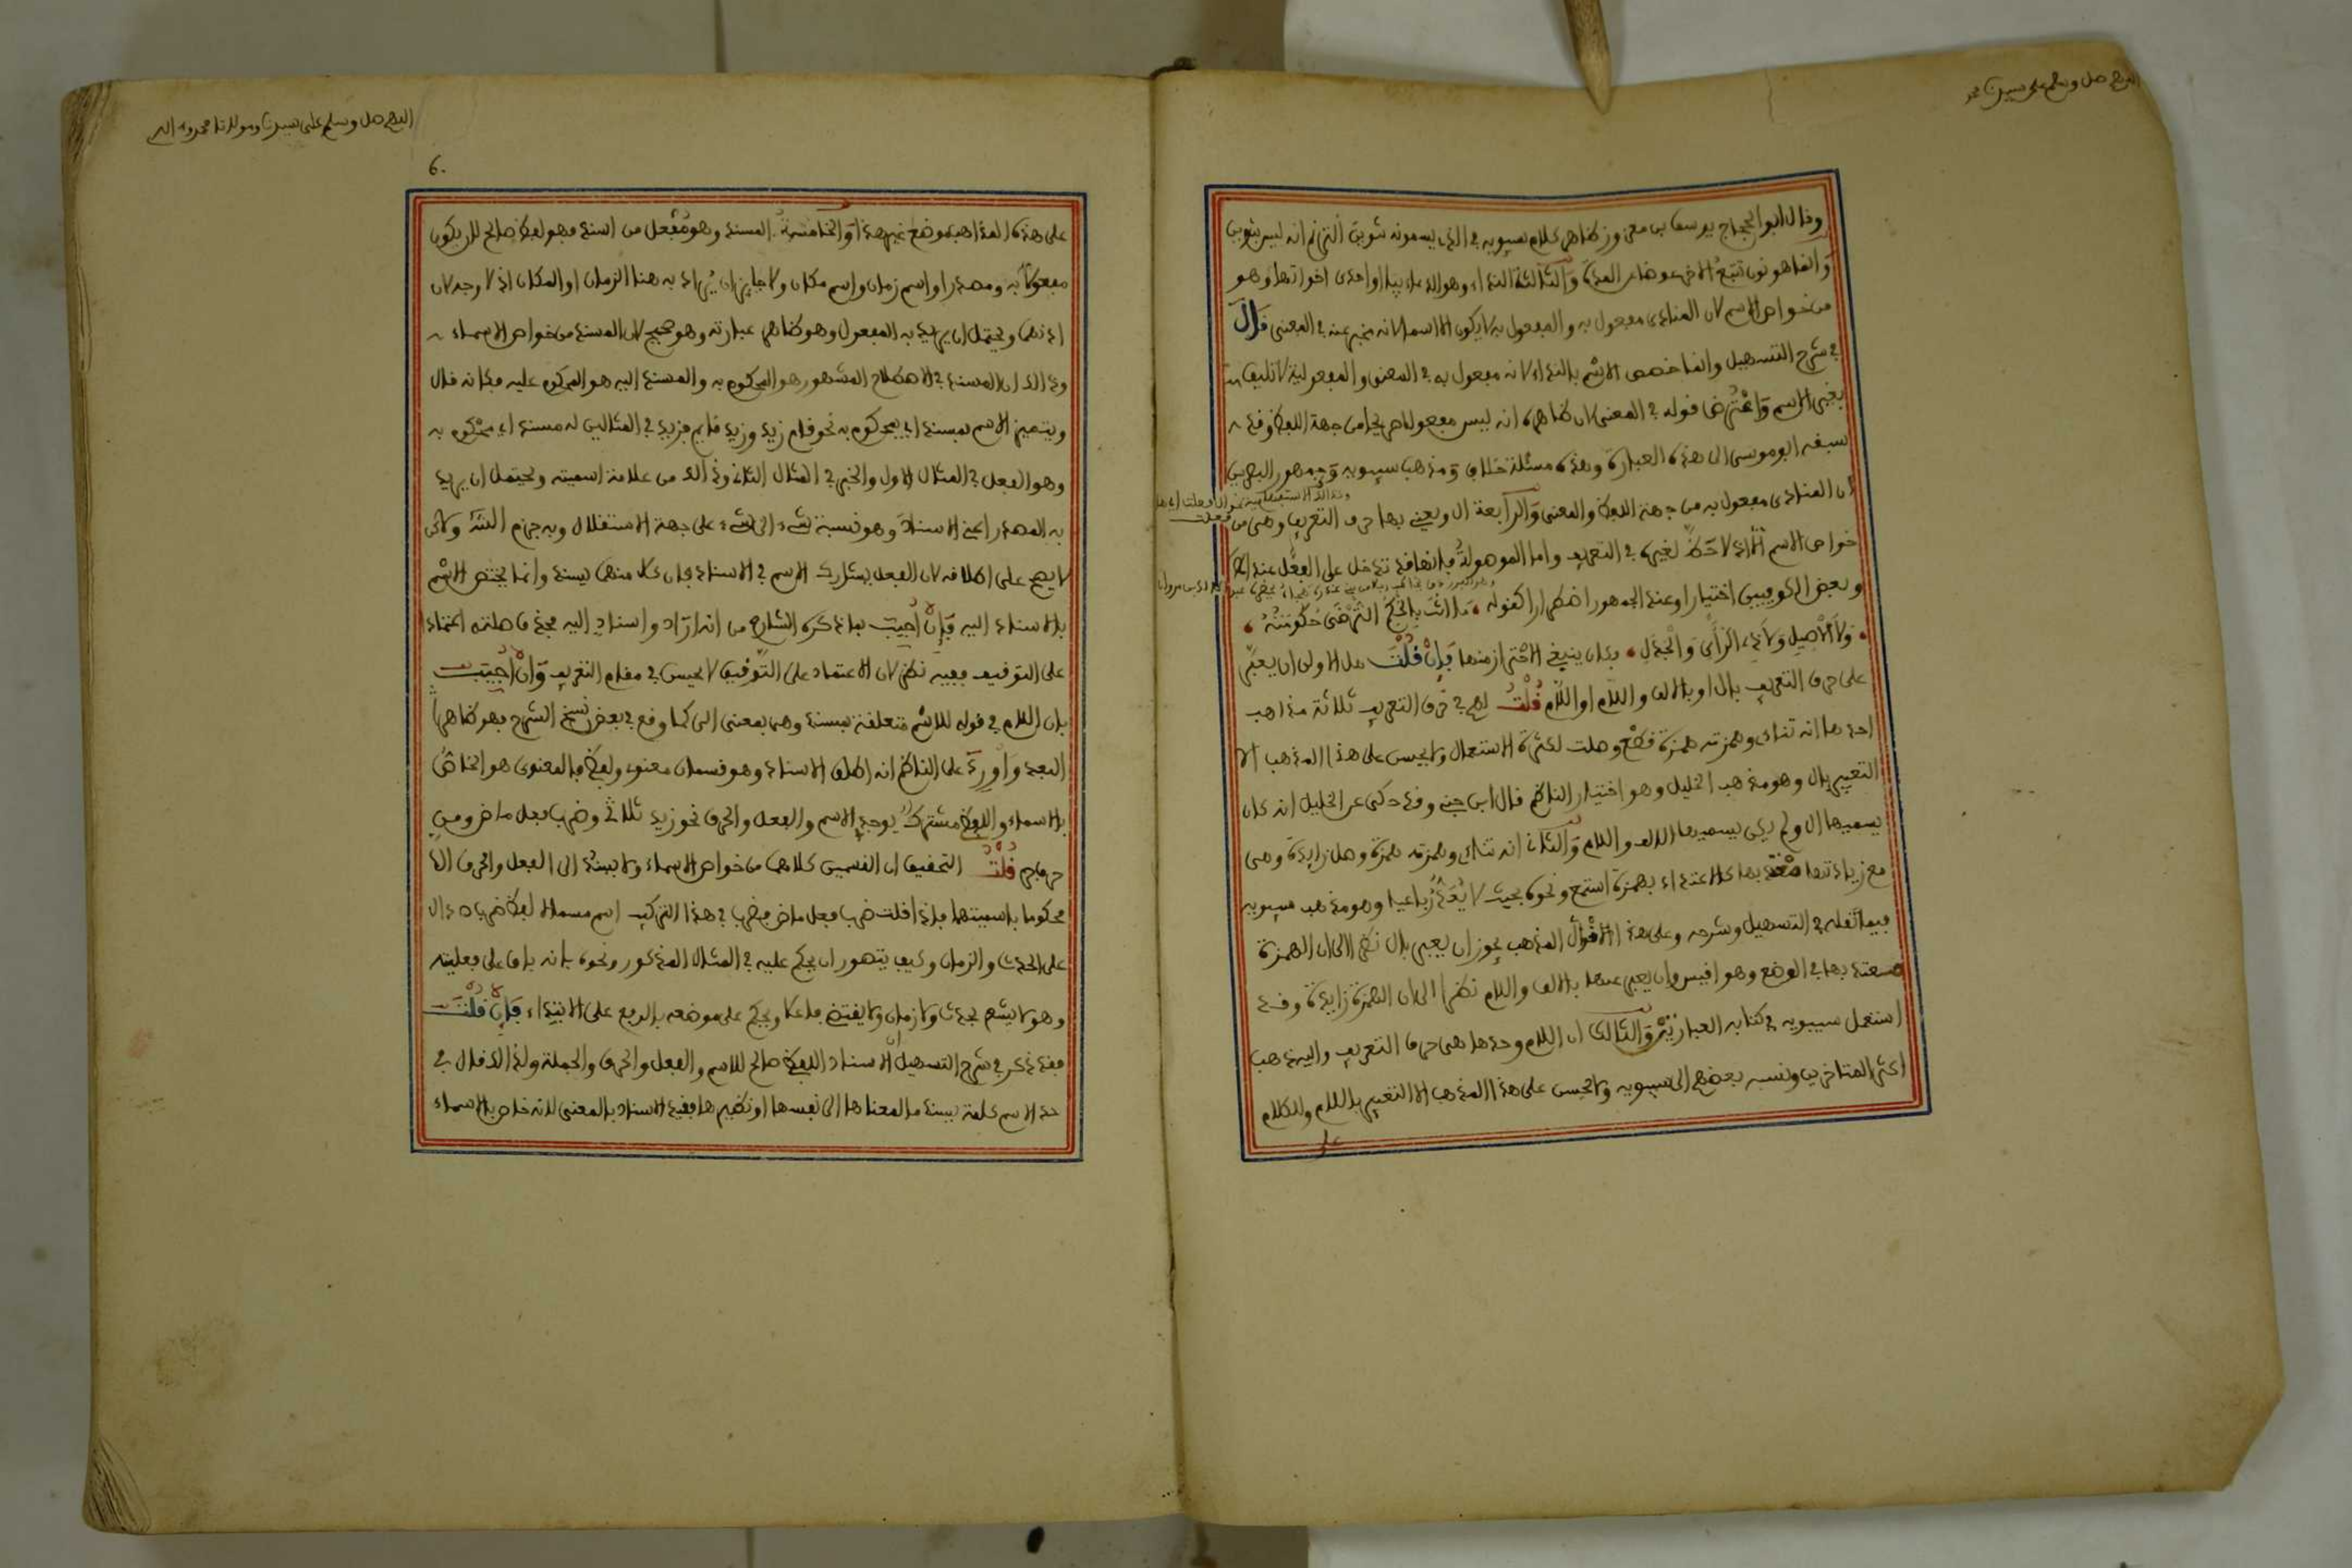 اللهم صل وسلم على سيدنا محمد
وقال ابو الحجاج يوسف بن معزوز ظاهر كلام سيبويه في الذي يسمونه تنوين الترنم انه ليس بتنوين
وانما هو نون تتبع الاخر عوضا من المدة والثالثة النداء وهو الدعاء بيا او احدى اخواتها وهو
من خواص الاسم لان المنادى مفعول به والمفعول به لا يكون الا اسما لانه مخبر عنه في المعنى قال
في شرح التسهيل وانما خصص الاسم بالنداء لانه مفعول به في المعنى والمفعولية لا تليق
بغير الاسم واعترض قوله في المعنى لان ظاهره انه ليس مفعولا صريحا من جهة اللفظ وقد
سبقه ابو موسى الى هذه العبارة وهذه مسئلة خلاف ومذهب سيبويه وجمهور البصريين
ان المنادى مفعول به من جهة اللفظ والمعنى والرابعة ال ويعني بها حرف التعريف وهي من
خواص الاسم اذ لا حظ لغيره في التعريف واما الموصولة فانها قد تدخل على الفعل عند الناظم
وبعض الكوفيين اختيارا وعند الجمهور اضطرارا كقوله ما انت بالحكم الترضى حكومته
ولا الاصيل ولا ذي الرأي والجدل وكان ينبغي الاحتراز منها فإن قلت هل الاولى ان يعبر
على حرف التعريف بال او بالالف واللام او اللام قلت لهم في حرف التعريف ثلاثة مذاهب
احدها انه ثنائي وهمزته همزة قطع وصلت لكثرة الاستعمال ولا يحسن على هذا المذهب الا
التعبير بال وهو مذهب الخليل وهو اختيار الناظم قال ابن جني وقد حكي عن الخليل انه كان
يسميها ال ولم يكن يسميها الالف واللام والثاني انه ثنائي وهمزته همزة وصل زايدة وهي
مع زيادتها معتد بها كالاعتداد بهمزة استمع ونحوه بحيث لا يعد رباعيا وهو مذهب سيبويه
فيما نقله في التسهيل وشرحه وعلى هذا المذهب يجوز ان يعبر بال نظرا الى ان الهمزة
معتد بها في الوضع وهو اقيس وان يعبر عنها بالالف واللام نظرا الى ان الهمزة زايدة وقد
استعمل سيبويه في كتابه العبارتين والثالث ان اللام وحدها هي حرف التعريف واليه ذهب
اكثر المتاخرين ونسبه بعضهم الى سيبويه ولا يحسن على هذا المذهب الا التعبير باللام وللكلام
على
اللهم صل وسلم على سيدنا ومولانا محمد وءاله
6.
على هذه المذاهب موضع غير هذا والخامسة المسند وهو مفعل من اسند فهو لفظ صالح لان يكون
مفعولا به ومصدرا واسم زمان واسم مكان ولا جايز ان يراد به هنا الزمان او المكان اذ لا وجه لان
ادتهما ويحتمل ان يريد به المفعول وهو ظاهر عبارته وهو صحيح لان المسند من خواص الاسماء
وذالك ان المسند في الاصطلاح المشهور هو المحكوم به والمسند اليه هو المحكوم عليه فكانه قال
ويتميز الاسم بمسند اي بمحكوم به نحو قام زيد وزيد قايم فزيد في المثالين له مسند اي محكوم به
وهو الفعل في المثال الاول والخبر في المثال الثاني وذالك من علامة اسميته ويحتمل ان يريد
به المصدر اعني الاسناد وهو نسبة شيء الى شيء على جهة الاستقلال وبه جزم الش ولاكن
لا يصح على اطلاقه لان الفعل يشارك الاسم في الاسناد فان كلا منهما يسند وانما يختص الاسم
بالاسناد اليه فإن اجيب بما ذكره الشارح من انه اراد واسناد اليه فحذف صلته اعتمادا
على التوقيف ففيه نظر لان الاعتماد على التوقيف لا يحسن في مقام التعريف وان اجيب
بان اللام في قوله للاسم متعلقة بمسند وهي بمعنى الى كما وقع في بعض نسخ الشرح فهو ظاهر
البعد واورد على الناظم انه اطلق الاسناد وهو قسمان معنوي ولفظي فالمعنوي هو الخاص
بالاسماء واللفظي مشترك يوجد في الاسم والفعل والحرف نحو زيد ثلاثي وضرب فعل ماض ومن
حرف جر قلت التحقيق ان القسمين كلاهما من خواص الاسماء ولا يسند الى الفعل والحرف الا
محكوما باسميتهما فاذا قلت ضرب فعل ماض فضرب في هذا التركيب اسم مسماه لفظ ضرب الدال
على الحدث والزمان وكيف يتصور ان يحكم عليه في المثال المذكور ونحوه بانه باق على فعليته
وهو لا يشعر بحدث ولا زمان ولا يقتضي فاعلا ويحكم على موضعه بالرفع على الابتداء فإن قلت
فقد ذكر في شرح التسهيل ان الاسناد اللفظي صالح للاسم والفعل والحرف والجملة ولذالك قال في
حد الاسم كلمة يسند ما لمعناها الى نفسها او نظيرها فقيد الاسناد بالمعنى لانه خاص بالاسماء